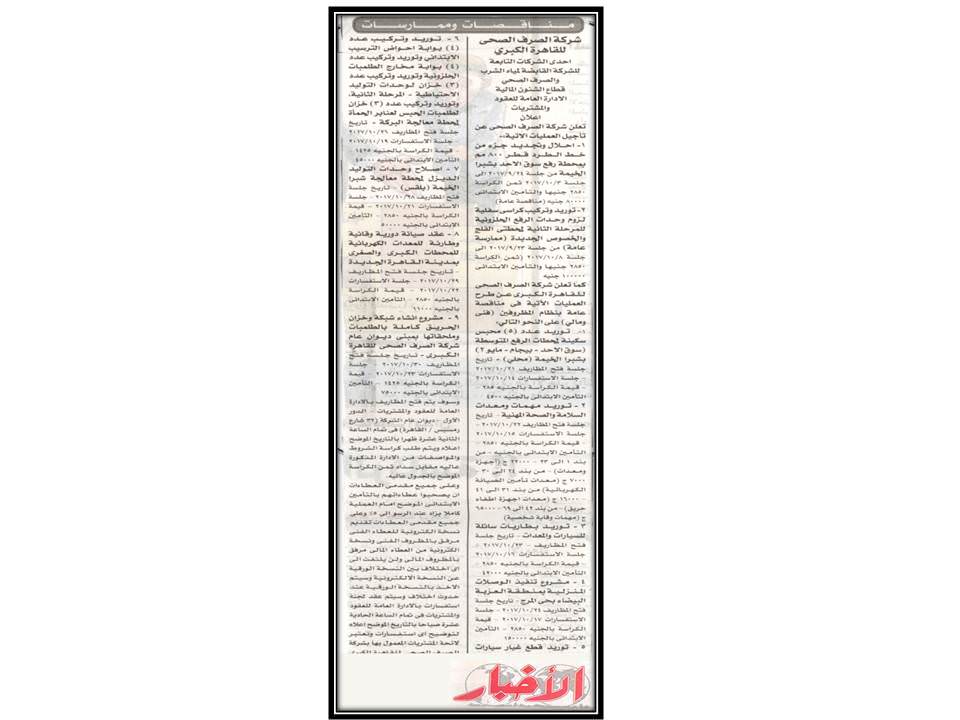 مناقصات وممارسات
شركة الصرف الصحى
للقاهرة الكبري
احدى الشركات التابعة
للشركة القابضة لمياه الشرب
والصرف الصحى
قطاع الشئون المالية
الادارة العامة للعقود
والمشتريات
اعلان
تعلن شركة الصرف الصحى عن
تأجيل العمليات الاتية:-
١- احلال وتجديد جزء من
خط الطرد قطر ٨٠٠ مم
بمحطة رفع سوق الاحد بشبرا
الخيمة من جلسة ٢٠١٧/٩/٢٤ الى
جلسة ٢٠١٧/١٠/٣ ثمن الكراسة
٢٨٥٠ جنيها والتأمين الابتدائى
٨٠٠٠٠ جنيه (مناقصة عامة)
٢- توريد وتركيب كراسى سفلية
لزوم وحدات الرفع الحلزونية
للمرحلة الثانية لمحطتى القلج
والخصوص الجديدة (ممارسة
عامة) من جلسة ٢٠١٧/٩/٢٣ الى
جلسة ٢٠١٧/١٠/٨ (ثمن الكراسة
٢٨٥٠ جنيها والتأمين الابتدائى
١٠٠٠٠٠ جنيه
كما تعلن شركة الصرف الصحى
للقاهرة الكبرى عن طرح
العمليات الاتية فى مناقصة
عامة بنظام المظروفين (فنى
ومالي) على النحو التالي:-
١- توريد عدد (٥) محبس
سكينة لمحطات الرفع المتوسطة
(سوق الاحد - بيجام - مايو ٢)
بشبرا الخيمة (محلي) - تاريخ
جلسة فتح المظاريف ٢٠١٧/١٠/٢١
- جلسة الاستفسارات ٢٠١٧/١٠/١٤
- قيمة الكراسة بالجنيه ٢٨٥
- التأمين الابتدائى بالجنيه ٤٥٠٠
٢- توريد مهمات ومعدات
السلامة والصحة المهنية - تاريخ
فتح المظاريف ٢٠١٧/١٠/٢٢ -
جلسة الاستفسارات ٢٠١٧/١٠/١٥
- قيمة الكراسة بالجنيه ٢٨٥٠ -
التأمين الابتدائى بالجنيه - من
بند ١ الى ٢٣ - ٢٢٠٠٠ ج (أجهزة
ومعدات) - من بند ٢٤ الى ٣٠ -
٧٠٠٠ ج (معدات تأمين الصيانة
الكهربائية) من بند ٣١ الى ٤١
- ١٦٠٠٠ ج (معدات اجهزة اطفاء
حريق) - من بند ٤٢ الى ٦٩ - ٦٥٠٠٠
ج (مهمات وقاية شخصية)
٣ - توريد بطاريات سائلة
للسيارات والمعدات - تاريخ جلسة
فتح المظاريف ٢٠١٧/١٠/٢٣ -
جلسة الاستفسارات ٢٠١٧/١٠/١٦
- قيمة الكراسة بالجنيه ٢٨٥٠ -
التأمين الابتدائى بالجنيه ٤٢٠٠٠
٤ - مشروع تنفيذ الوصلات
المنزلية بمنطقة العزبة
البيضاء بحى المرج - تاريخ جلسة
فتح المظاريف ٢٠١٧/١٠/٢٤ - جلسة
الاستفسارات ٢٠١٧/١٠/١٧ - قيمة
الكراسة بالجنيه ٢٨٥٠ - التأمين
الابتدائى بالجنيه ١٥٠٠٠٠
٥ - توريد قطع غيار سيارات
٦ - توريد وتركيب عدد
(٤) بوابة احواض الترسيب
الابتدائى وتوريد وتركيب عدد
(٤) بوابة مخارج الطلمبات
الحلزونية وتوريد وتركيب عدد
(٣) خزان لوحدات التوليد
الاحتياطية - المرحلة الثانية،
وتوريد وتركيب عدد (٣) خزان
لطلمبات الحبس لعنابر الحمأة
لمحطة معالجة البركة - تاريخ
جلسة فتح المظاريف ٢٠١٧/١٠/٢٦
- جلسة الاستفسارات ٢٠١٧/١٠/١٩
- قيمة الكراسة بالجنيه ١٤٢٥
التأمين الابتدائى بالجنيه ٤٥٠٠٠
٧ - اصلاح وحدات التوليد
الديزل لمحطة معالجة شبرا
الخيمة (بلقس) - تاريخ جلسة
فتح المظاريف ٢٠١٧/١٠/٢٨ - جلسة
الاستفسارات ٢٠١٧/١٠/٢١ - قيمة
الكراسة بالجنيه ٢٨٥٠ - التأمين
الابتدائى بالجنيه ٥٠٠٠٠
٨ - عقد صيانة دورية وقائية
وطارئة للمعدات الكهربائية
للمحطات الكبرى والصغرى
بمدينة القاهرة الجديدة
- تاريخ جلسة فتح المظاريف
٢٠١٧/١٠/٢٩ - جلسة الاستفسارات
٢٠١٧/١٠/٢٢ - قيمة الكراسة
بالجنيه ٢٨٥٠ - التأمين الابتدائى
بالجنيه ٦٦٠٠٠
٩ - مشروع انشاء شبكة وخزان
الحريق كاملة بالطلمبات
وملحقاتها بمبنى ديوان عام
شركة الصرف الصحى للقاهرة
الكبرى - تاريخ جلسة فتح
المظاريف ٢٠١٧/١٠/٣٠ - جلسة
الاستفسارات ٢٠١٧/١٠/٢٣ - قيمة
الكراسة بالجنيه ١٤٢٥ - التأمين
الابتدائى بالجنيه ٧٥٠٠٠
وسوف يتم فتح المظاريف بالادارة
العامة للعقود والمشتريات - الدور
الاول - ديوان عام الشركة (٣٢ شارع
رمسيس / القاهرة) فى تمام الساعة
الثانية عشرة ظهرا بالتاريخ الموضح
اعلاه ويتم طلب كراسة الشروط
والمواصفات من الادارة المذكورة
عاليه مقابل سداد ثمن الكراسة
الموضح بالجدول عاليه.
وعلى جميع مقدمى العطاءات
ان يصحبوا عطاءاتهم بالتأمين
الابتدائى الموضح امام العملية
كاملا يزاد عند الرسو إلى ٥٪ وعلى
جميع مقدمى العطاءات تقديم
نسخة الكترونية للعطاء الفنى
مرفق بالمظروف الفنى ونسخة
الكترونية من العطاء المالى مرفق
بالمظروف المالى ولن يلتفت الى
أى اختلاف بين النسخة الورقية
عن النسخة الالكترونية وسيتم
الاخذ بالنسخة الورقية عند
حدوث اختلاف وسيتم عقد لجنة
استفسارات بالادارة العامة للعقود
والمشتريات فى تمام الساعة الحادية
عشرة صباحا بالتاريخ الموضح اعلاه
لتوضيح اى استفسارات وتعتبر
لائحة المشتريات المعمول بها بشركة
الصرف الصحى للقاهرة الكبرى
الأخبار